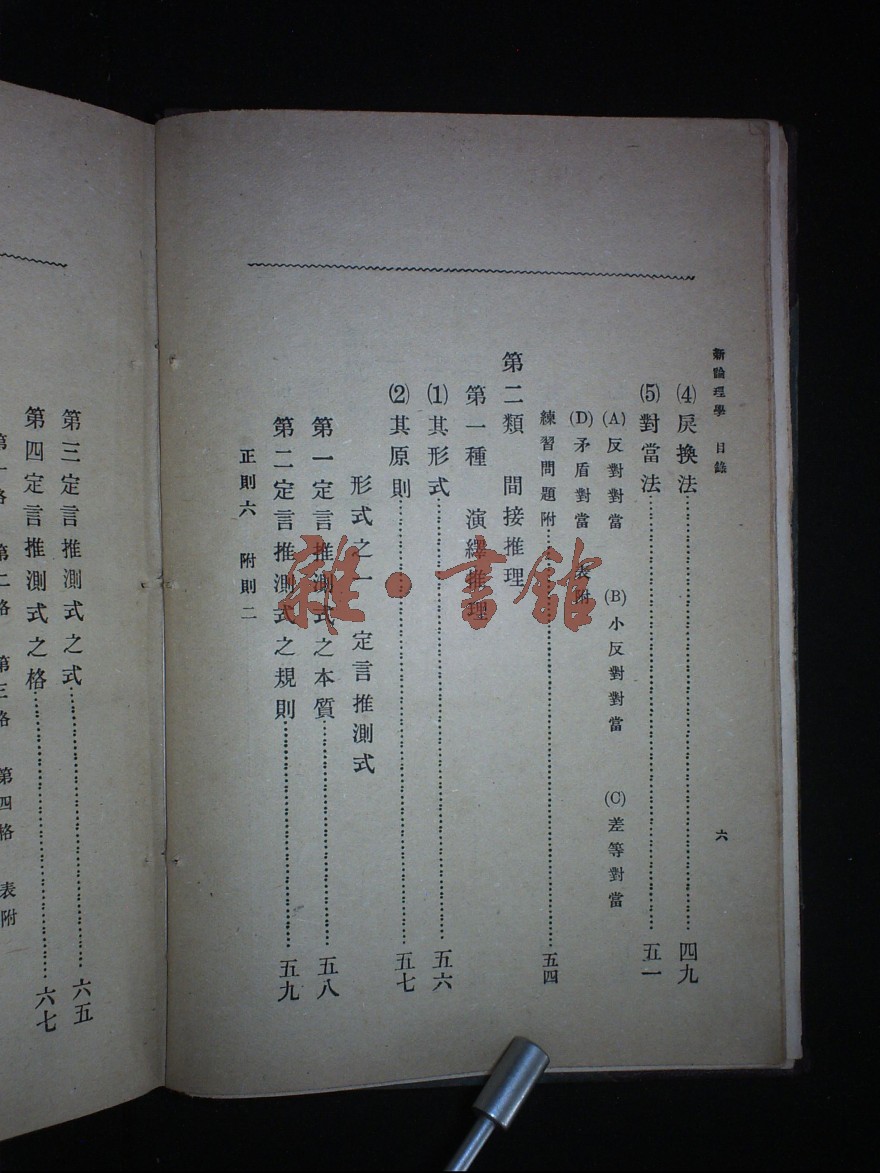 新論理學 目錄 六
(4)戻換法……四九
(5)對當法……五一
(A)反對對當 (B)小反對對當 (C)差等對當
(D)矛盾對當 表附
練習問題附……五四
第二類 間接推理
第一種 演繹推理
(1)其形式……五六
(2)其原則……五七
形式之一 定言推測式
第一定言推測式之本質……五八
第二定言推測式之規則……五九
正則六 附則二
第三定言推測式之式……六五
第四定言推測式之格……六七
第一格 第二格 第三格 第四格 表附
雜·書館